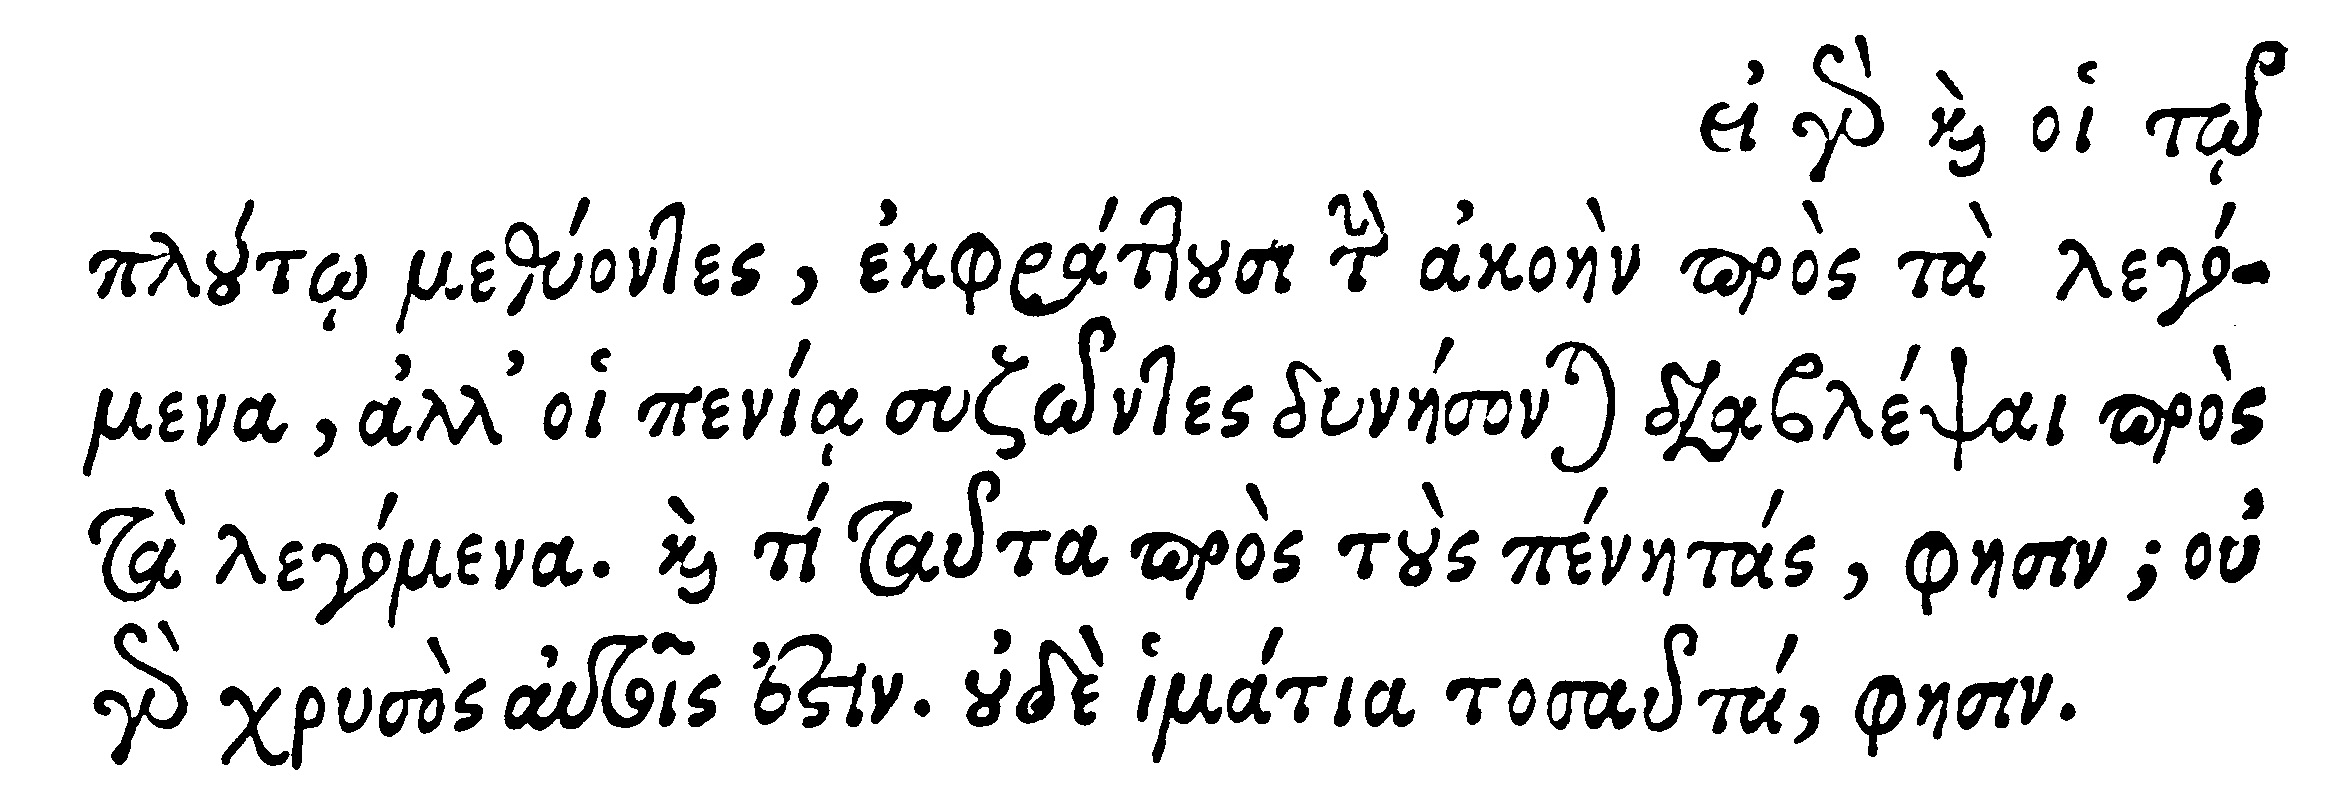 εἰ γὰρ καὶ οἱ τῷ
πλούτῳ μεθύοντες, ἐκφράττουσι τὴν ἀκοὴν πρὸς τὰ λεγό-
μενα, ἀλλ' οἱ πενίᾳ συζῶντες δυνήσονται διαβλέψαι πρὸς
τὰ λεγόμενα. καὶ τί ταῦτα πρὸς τοὺς πένητάς, φησιν; οὐ
γὰρ χρυσὸς αὐτοῖς ἐστιν. οὐδὲ ἱμάτια τοσαῦτά, φησιν.